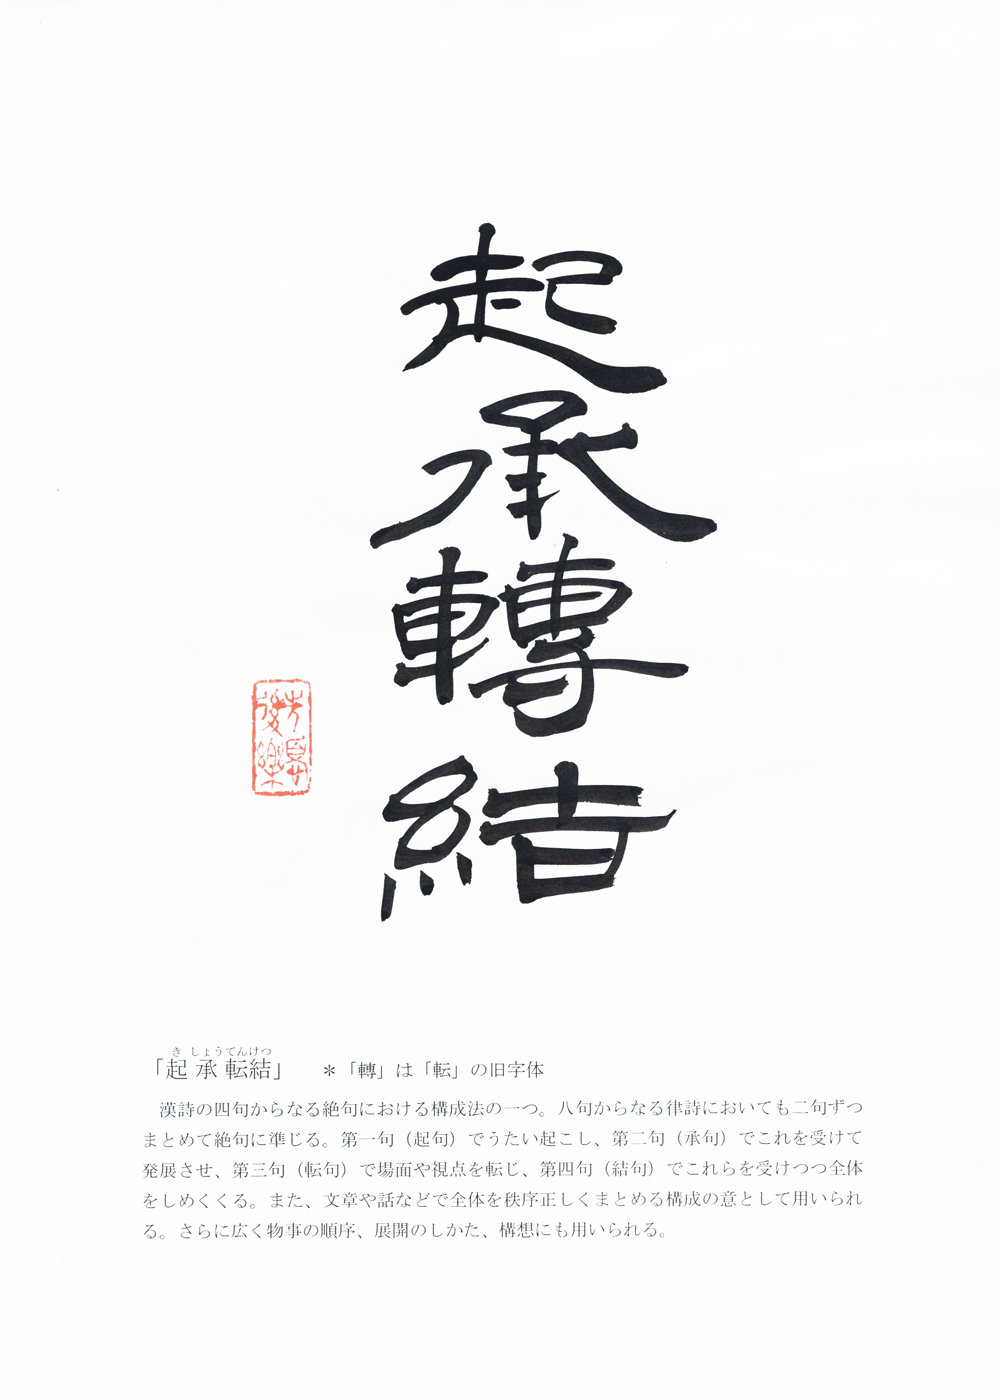 起
承
轉
結
先憂
後樂
き しょうてんけつ
「起 承 転結」 ＊「轉」は「転」の旧字体
漢詩の四句からなる絶句における構成法の一つ。八句からなる律詩においても二句ずつ
まとめて絶句に準じる。第一句（起句）でうたい起こし、第二句（承句）でこれを受けて
発展させ、第三句（転句）で場面や視点を転じ、第四句（結句）でこれらを受けつつ全体
をしめくくる。また、文章や話などで全体を秩序正しくまとめる構成の意として用いられ
る。さらに広く物事の順序、展開のしかた、構想にも用いられる。